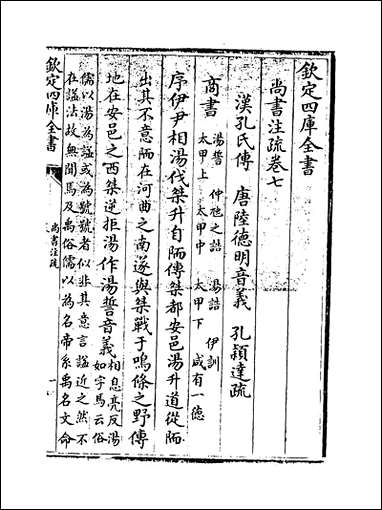 欽定四庫全書
尚書注疏卷七
漢孔氏傳　唐陸德明音義　孔穎達疏
商書　湯誓　仲虺之誥　湯誥　伊訓
太甲上　太甲中　太甲下　咸有一德
序伊尹相湯伐桀升自陑傳桀都安邑湯升道從陑
出其不意陑在河曲之南遂與桀戰于鳴條之野傳
地在安邑之西桀逆拒湯作湯誓音義相息亮反湯
如字馬云俗
儒以湯為諡或為號號者似非其意言諡近之然不
在諡法故無聞焉及禹俗儒以為名帝系禹名文命
欽定四庫全書
尚書注疏
一